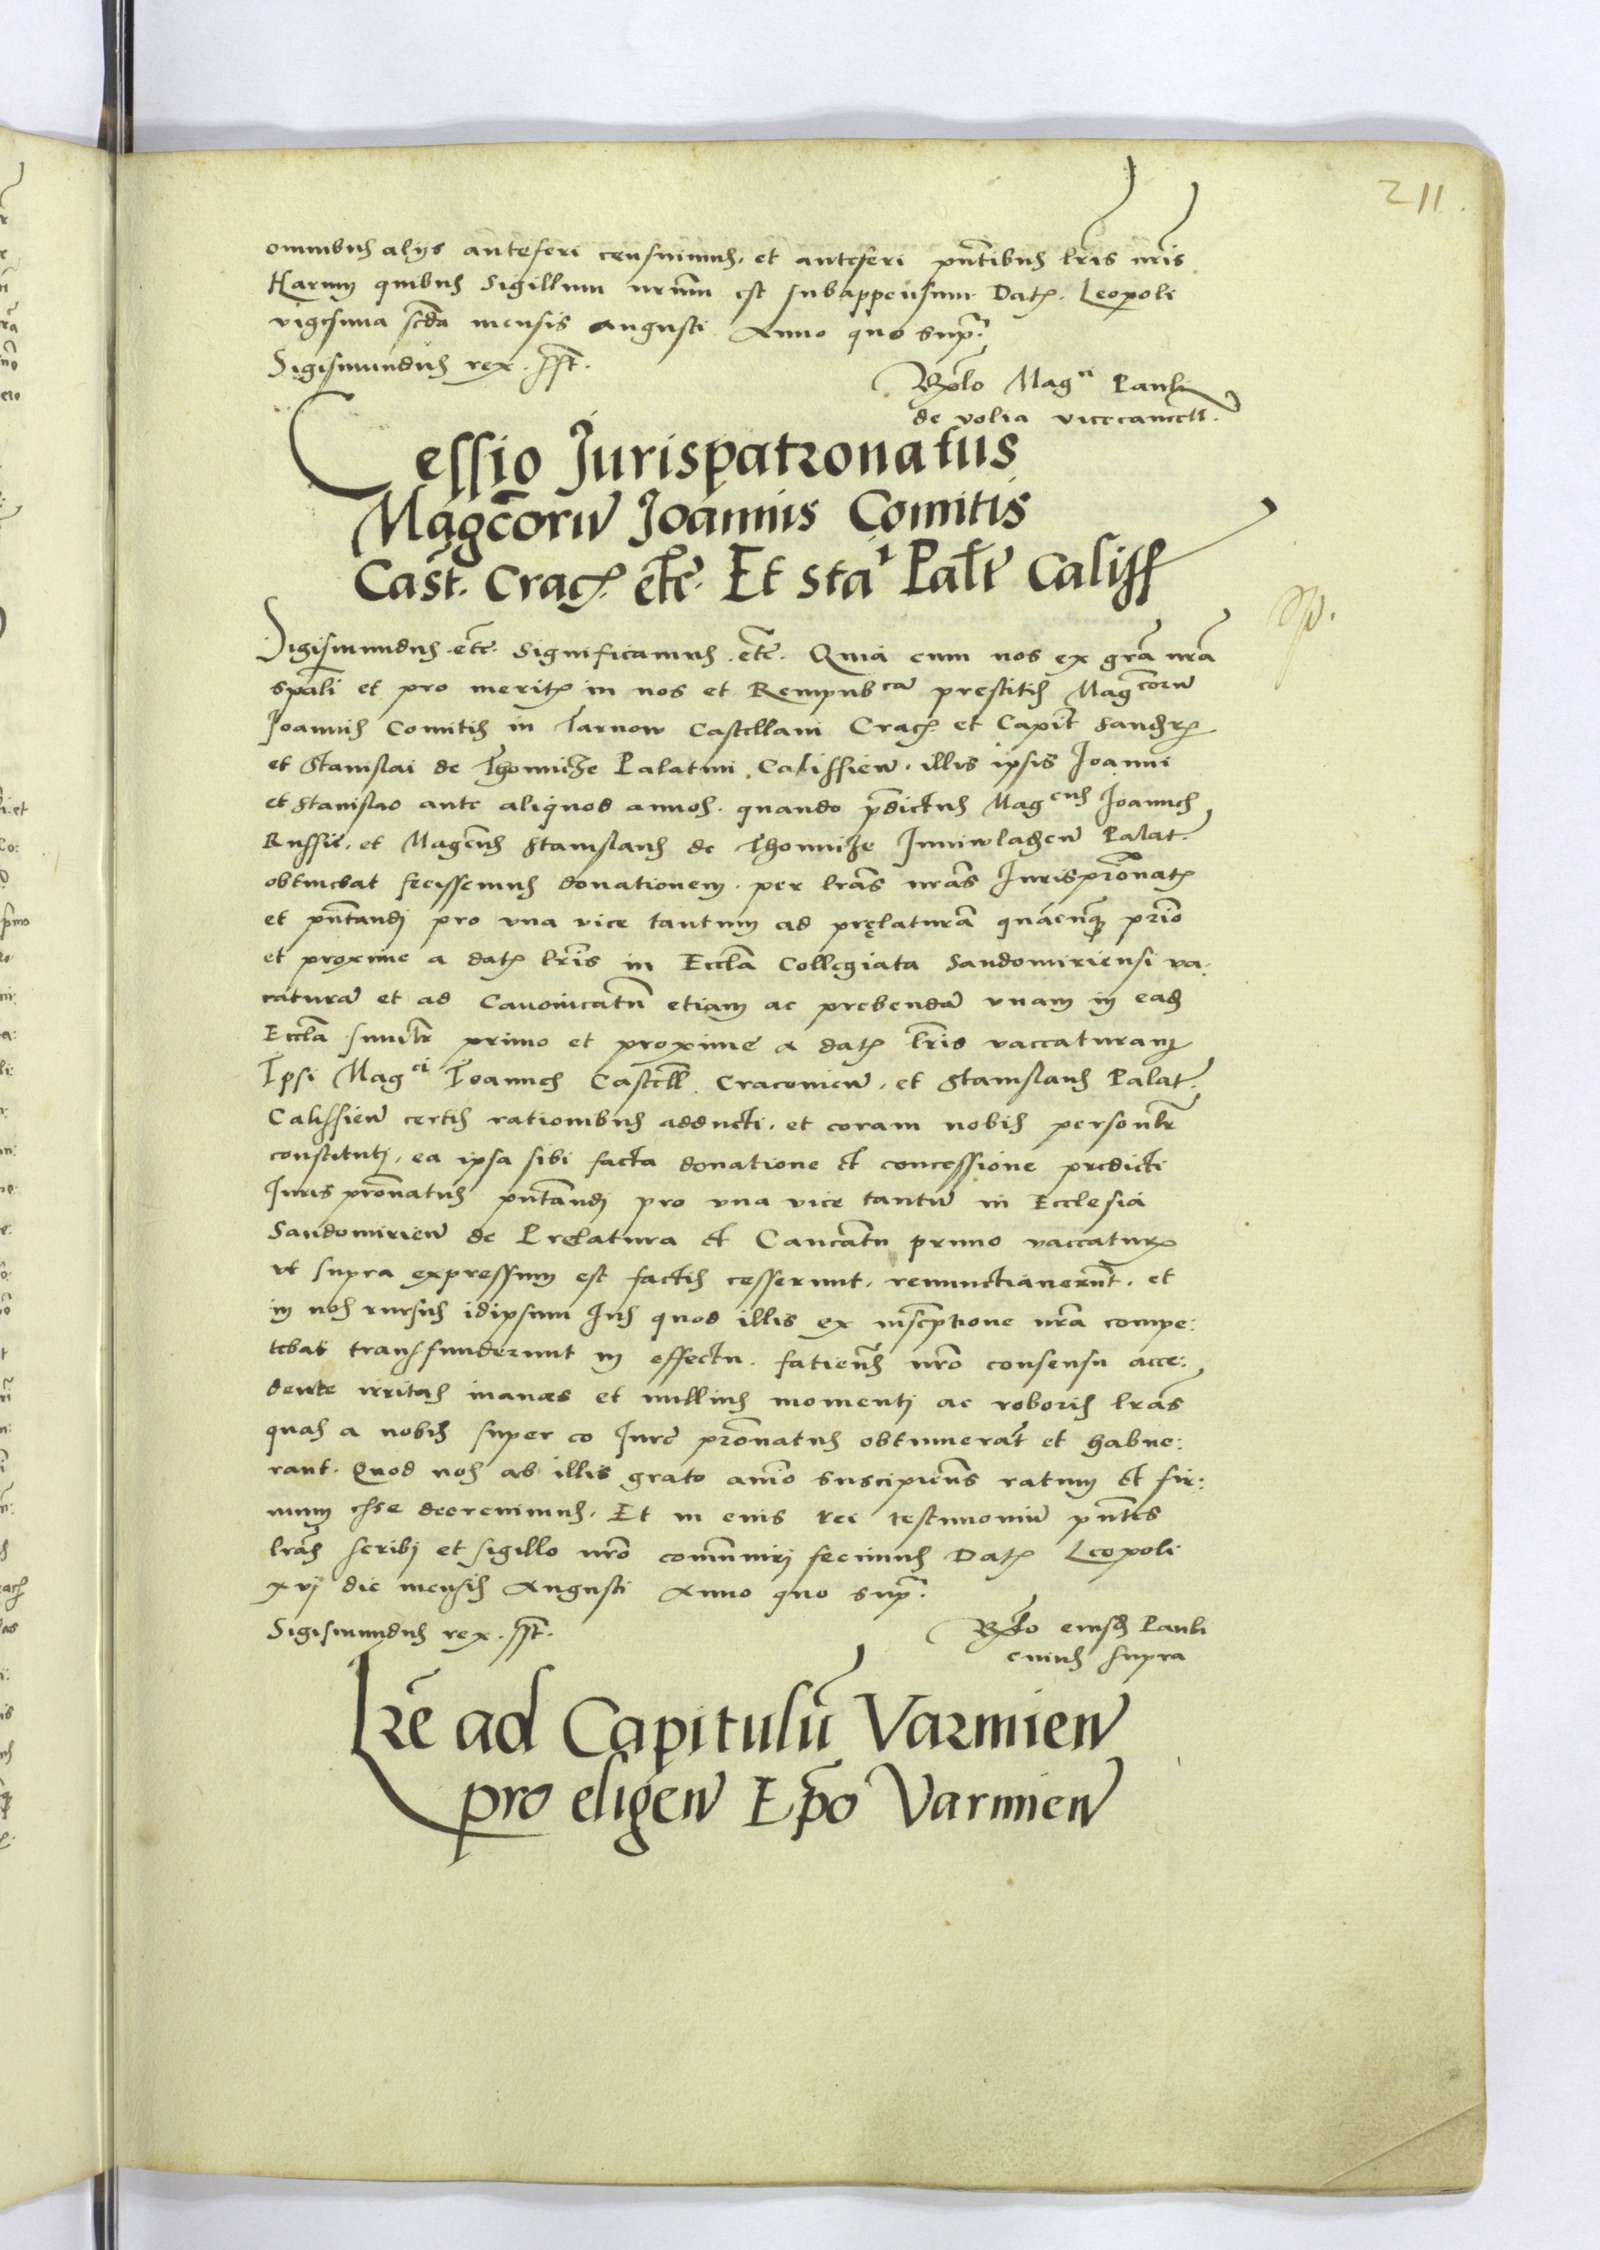 211.
omnibus alys anteferi censuimus. et anteferi pñtibus lr̃is nr̃is
Harum quibus Sigillum nrũm est subappensum Dat. Leopoli
vigesima scd̃a mensis augusti Anno quo sup̃.
Sigismundus rex. sst.
Rłlo Magci Pauli
de volia vicecancell.
Cessio Jurispatronatus
Magc̃orũ Joannis Comitis
Cast. Crac. etc̃. Et sta¹ Palt̃ Caliss
Sigismundus. etc̃. Significamus. etc̃. Quia cum nos ex grã nrã
spãli et pro merit in nos et Rempubcam prestitis Magcorũ
Joannis Comitis in Tarnow Castellani Crac. et Capit̃ Sandr
et Stanislai de Thomicze Palatini Calissien. illis ipsis Joanni
et Stanislao ante aliquod annos. quando p̃dictus Magcus Joannes
Russie. et Magc̃us Stanislaus de Thomicze Juniwladen Palat̃.
obtinebat fecissemus donationem. per lrãs nrãs Jurisprõnat
et pñtandi pro vna vice tantum ad pręlaturã quãcunq̃ prĩo
et proxime a dat lr̃is in Eccl̃a Collegiata Sandomiriensi va:
caturã et ad Canonicatũ etiam ac prebendã vnam in ead
Eccl̃a simil̃r primo et proxime a dat lr̃is vaccaturam
Ipsi Magci Joannes Castell̃ Craconien. et Stanislaus Palat̃.
Calissien certis rationibus adducti. et coram nobis personl̃r
constituti. ea ipsa sibi facta donatione et concessione predicti
Juris prõnatus pñtandi pro vna vice tantũ in Ecclesia
Sandomirien de Prelatura et Cancãtu primo vaccatur
vt supra expressum est factis cesserunt. renunctiauerũt. et
in nos rursus idipsum Jus quod illis ex inscp̃tione nrã compe:
tebat transfunderunt in effectu. fatieñs nrõ consensu acce:
dente irritas inanes et nullius momenti ac roboris lrãs
quas a nobis super eo Jure prõnatus obtinuerãt et habue:
rant. Quod nos ab illis grato anĩo suscipieñs ratum et fir:
mum esse decreuimus. Et in euis rei testimoniũ pñtes
lrãs scribi et sigillo nrõ com̃uniri fecimus Dat Leopoli
xvj die mensis Augusti Anno quo sup̃.
Sigismundus rex. sst.
Rłlo eiusd Pauli
cuius supra
Lrẽ ad Capitulũ Varmien
pro eligen Ep̃o Varmien